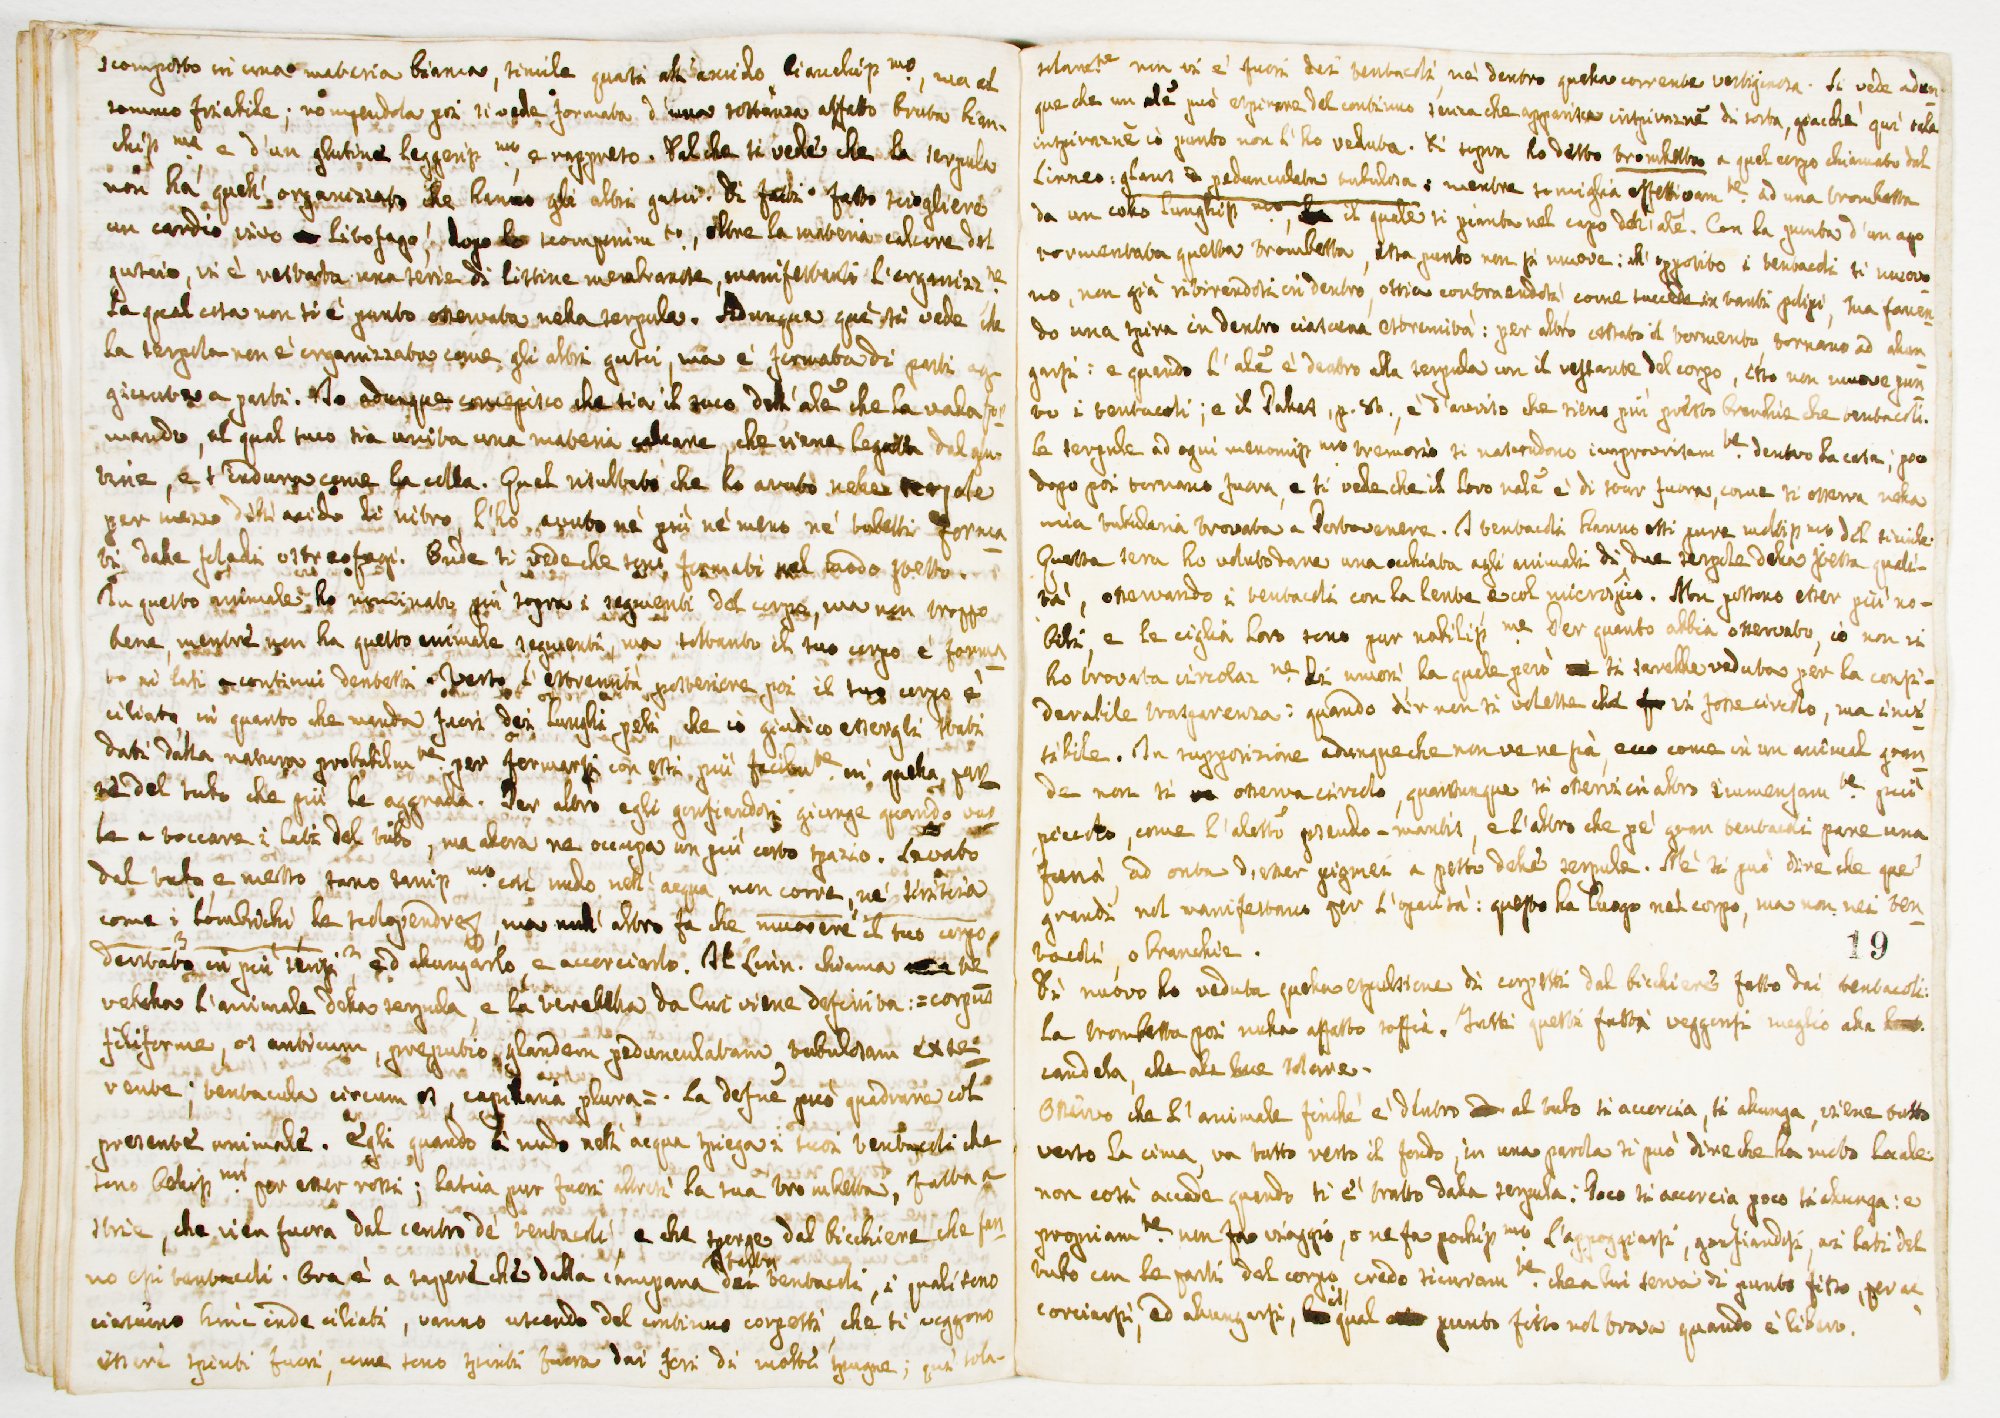 scomposto in una materia bianca, simile quasi all'acido bianchip.mo, ma al
sommo friabile; rompendola poi si vede formata d'una sostanza affatto bruta bian-
chip.ma e d'un glutine leggerip.mo, e rappreso. Dal che si vede che la serpula
non ha quell'organizzato che hanno gli altri gusci. Di fatti fatto sciogliere
un cardio vivo litofago, dopo scomposizim.to, oltre la materia calcare del
guscio, vi è restata una serie di listine membranose, manifestanti l'organizz.ne
La qual cosa non si è punto osservata nella serpula. Adunque quì si vede che
la serpola non è organizzata come gli altri gusci, ma è formata di parti ag-
giunte a parti. Io adunque concepisco che sia il suco dell'ale che la vada for-
mando, al qual suco sia unita una materia calcare, che viene legata dal glu-
tine, e s'indura come la colla. Quel risultato che ho avuto nelle serpole
per mezzo dell'acido di nitro, l'ho avuto nè più nè meno ne' tubetti forma-
ti dalle foladi ostreofagi. Onde si vede che sono formati nel modo stesso.
In questo animale ho nominato più sopra i segmenti del corpo, ma non troppo
bene, mentre non ha questo animale segmenti, ma soltanto il suo corpo è forma-
to ai lati a continui dentelli. Verso l'estremità posteriore poi il suo corpo è
ciliato, in quanto che manda fuori dei lunghi peli, che io giudico essergli stati
dati dalla natura probabilm.te per fermarsi con essi più facilm.te in quella par-
te del tubo che più le aggrada. Per altro egli gonfiandosi giunge quando vuo-
le a toccare i lati del tubo, ma allora ne occupa un più corto spazio. Levato
dal tubo e messo sano sanip.mo così nudo nell'acqua non corre, nè striscia
come i lombrichi le scolopendre, ma null'altro fa che muovere il suo corpo,
ed allungarlo, e accorciarlo. Il Linn. chiama te
rebella l'animale della serpula, e la terebella da lui viene definita: = corpus
filiforme, os anticum, preputio glandem pedunculatam, tubulosam exse-
rente; tentacula circum os, capillaria plura =. La defne può quadrare col
presente animale. Egli quando è nudo nell'acqua spiega i suoi tentacoli che
sono bellip.mi per esser rossi; lascia pur fuori altresì la sua trombetta, fatta a
strie, che vien fuora dal centro de' tentacoli, e che sporge dal bicchiere che fan-
no essi tentacoli. Ora è a sapere che dalla campana dei tentacoli, i quali sono
ciascuno hinc inde ciliati, vanno uscendo del continuo corpetti, che si veggono
essere spinti fuori, come sono spinti fuora dai fori di molte spugne; quì sola-
solam.te non vi è fuori dei tentacoli, nè dentro quella corrente vertiginosa. Si vede adun-
que che un ale può espirare del continuo senza che apparisca inspirazne di sorta, giacchè quì tale
inspirazne io punto non l'ho veduta. Di sopra ho detto trombetta a quel corpo chiamato dal
Linneo: glans pedunculata tubulosa: mentre somiglia effettivam.te ad una trombetta
da un collo lunghip.mo, il quale si pianta nel capo dell'ale. Con la punta d'un ago
tormentata questa trombetta, essa punto non si muove: all'opposito i tentacoli si muovo-
no, non già ritirandosi in dentro, ossia contraendosi come succede in tanti polipi, ma facen-
do una spira in dentro ciascuna estremità: per altro cessato il tormento tornano ad allun-
garsi: e quando l'ale è dentro alla serpula con il restante del corpo, esso non muove pun-
to i tentacoli; e il Pallas, p. 80., è d'avviso che siano più presto branchie che tentacoli.
Le serpule ad ogni menomip.mo tremorio si nascondono improvvisam.te dentro la casa; poco
dopo poi tornano fuora, e si vede che il loro nale è di star fuora, come si osserva nella
mia tubularia trovata a Portovenere. I tentacoli hanno essi pure moltip.mo del simile
Questa sera ho voluto dare una occhiata agli animali di due serpole della stessa quali-
tà, osservando i tentacoli con la lente e col microscpio. Non possono esser più no-
bili, e le ciglia loro sono pur nobilip.me Per quanto abbia osservato, io non vi
ho trovata circolaz.ne di umori la quale però si sarebbe veduta per la consi-
derabile trasparenza: quando dir non si volesse che vi fosse circolo, ma invi-
sibile. In supposizione adunque che non ve ne sia, ecco come in un animal gran-
de non si osserva circolo, quantunque si osservi in altro immensam.te più
piccolo, come l'aletto pseudo-mantis, e l'altro che pe' gran tentacoli pare una
furia, ad onta d'esser pigmei a petto delle serpule. Nè si può dire che que'
grandi nol manifestano per l'opacità: questo ha luogo nel corpo, ma non nei ten-
tacoli, o branchie.
19
Di nuovo ho veduta quella espulsione di corpetti dal bicchiere fatto dai tentacoli:
la trombetta poi nulla affatto soffia. Tutti questi fatti veggonsi meglio alla
candela, che alla luce solare.
Osservo che l'animale finchè è dentro al tubo si accorcia, si allunga, viene tutto
verso la cima, va tutto verso il fondo, in una parola si può dire che ha moto locale:
non così accade quando si è tratto dalla serpula: Poco si accorcia poco si allunga: e
propriam.te non fa viaggio, o ne fa pochip.mo L'appoggiarsi, gonfiandosi, ai lati del
tubo con le parti del corpo, credo sicuram.te che a lui serva di punto fisso, per ac-
corciarsi, ed allungarsi, il qual punto fisso nol trova quando è libero.